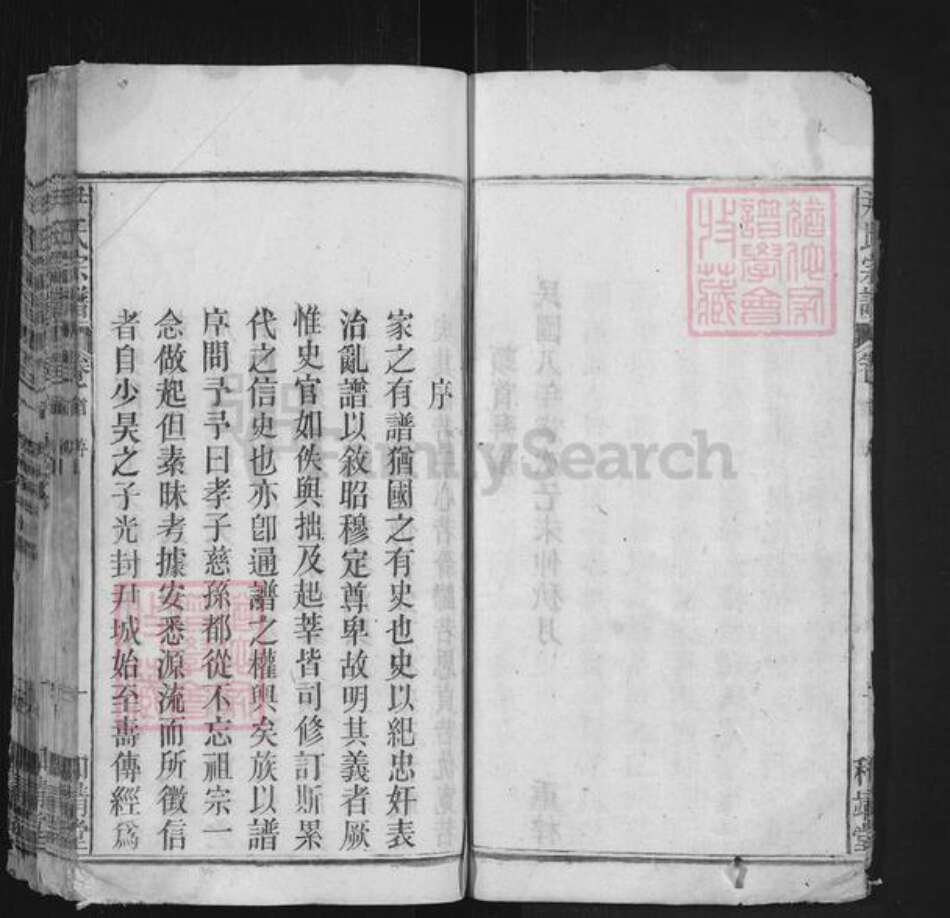 尹氏宗譜
卷首
序
家之有譜猶國之有史也史以紀忠奸表
治亂譜以敘昭穆定尊卑故明其義者厥
惟史官如佚與拙及起莘皆司修訂斯累
代之信史也亦卽通譜之權輿矣族以譜
序問予予曰孝子慈孫都從不忘祖宗一
念做起但素昧考據安悉源流而所徵信
者自少昊之子光封尹城始至壽傳經爲
FamilySearch